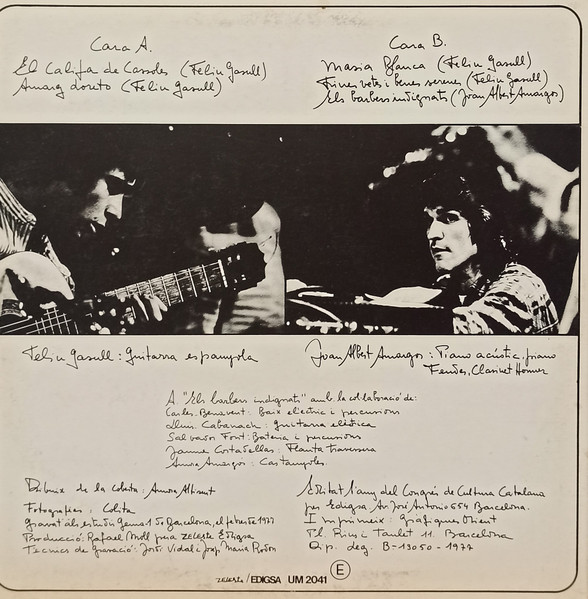 Cara A.
El Califa de Cassoles (Feliu Gasull)
Amarg doreto (Feliu Gasull)
Cara B.
Masia Blanca (Feliu Gasull)
Fines vetes i benes serenes (Feliu Gasull)
Els barbers indignats (Joan Albert Amargós)
Feliu Gasull: Guitarra espanyola
Joan Albert Amargós: Piano acústic, piano
Fender, Clarinet Honner
A "Els barbers indignats" amb la col·laboració de:
Carles Benavent: Baix elèctric i percusions
Lluis Cabanach: guitarra elèctrica
Salvador Font: Bateria i percusions
Jaume Cortadellas: Flauta travessera
Amora Amargós: Castanyoles.
Dibuix de la coberta: Amora Altisent
Fotografies: Colita
Gravat als estudis Gema 1 de Barcelona, el febrer de 1977
Producció: Rafael Moll per a zeleste Edigsa
Tecnics de gravació: Jordi Vidal i Josep Maria Rodon
Editat l'any del Congrés de Cultura Catalana
per Edigsa Av. José Antonio 654 Barcelona.
Imprimeix: Gràfiques Orient
Pl. Rius i Taulet 11. Barcelona
Dip. deg. B-13050-1977
zeleste / EDIGSA UM 2041
E